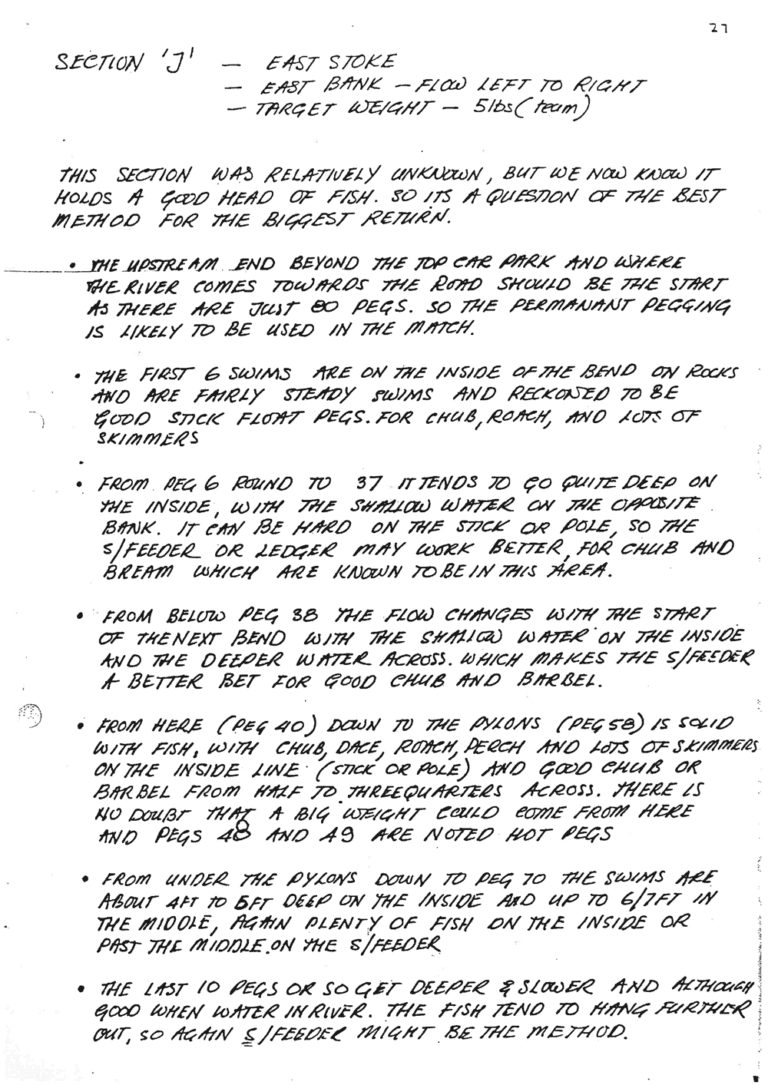 27
SECTION 'J' — EAST STOKE
— EAST BANK — FLOW LEFT TO RIGHT
— TARGET WEIGHT — 5lbs (team)
THIS SECTION WAS RELATIVELY UNKNOWN, BUT WE NOW KNOW IT
HOLDS A GOOD HEAD OF FISH. SO ITS A QUESTION OF THE BEST
METHOD FOR THE BIGGEST RETURN.
• THE UPSTREAM END BEYOND THE TOP CAR PARK AND WHERE
THE RIVER COMES TOWARDS THE ROAD SHOULD BE THE START
AS THERE ARE JUST 80 PEGS. SO THE PERMANANT PEGGING
IS LIKELY TO BE USED IN THE MATCH.
• THE FIRST 6 SWIMS ARE ON THE INSIDE OF THE BEND ON ROCKS
AND ARE FAIRLY STEADY SWIMS AND RECKONED TO BE
GOOD STICK FLOAT PEGS. FOR CHUB, ROACH, AND LOTS OF
SKIMMERS
• FROM PEG 6 ROUND TO 37 IT TENDS TO GO QUITE DEEP ON
THE INSIDE, WITH THE SHALLOW WATER ON THE OPPOSITE
BANK. IT CAN BE HARD ON THE STICK OR POLE, SO THE
S/FEEDER OR LEDGER MAY WORK BETTER, FOR CHUB AND
BREAM WHICH ARE KNOWN TO BE IN THIS AREA.
• FROM BELOW PEG 38 THE FLOW CHANGES WITH THE START
OF THE NEXT BEND WITH THE SHALLOW WATER ON THE INSIDE
AND THE DEEPER WATER ACROSS. WHICH MAKES THE S/FEEDER
A BETTER BET FOR GOOD CHUB AND BARBEL.
• FROM HERE (PEG 40) DOWN TO THE PYLONS (PEG 58) IS SOLID
WITH FISH, WITH CHUB, DACE, ROACH, PERCH AND LOTS OF SKIMMERS
ON THE INSIDE LINE (STICK OR POLE) AND GOOD CHUB OR
BARBEL FROM HALF TO THREEQUARTERS ACROSS. THERE IS
NO DOUBT THAT A BIG WEIGHT COULD COME FROM HERE
AND PEGS 48 AND 49 ARE NOTED HOT PEGS
• FROM UNDER THE PYLONS DOWN TO PEG 70 THE SWIMS ARE
ABOUT 4FT TO 5FT DEEP ON THE INSIDE AND UP TO 6/7FT IN
THE MIDDLE, AGAIN PLENTY OF FISH ON THE INSIDE OR
PAST THE MIDDLE ON THE S/FEEDER
• THE LAST 10 PEGS OR SO GET DEEPER & SLOWER AND ALTHOUGH
GOOD WHEN WATER IN RIVER. THE FISH TEND TO HANG FURTHER
OUT, SO AGAIN S/FEEDER MIGHT BE THE METHOD.